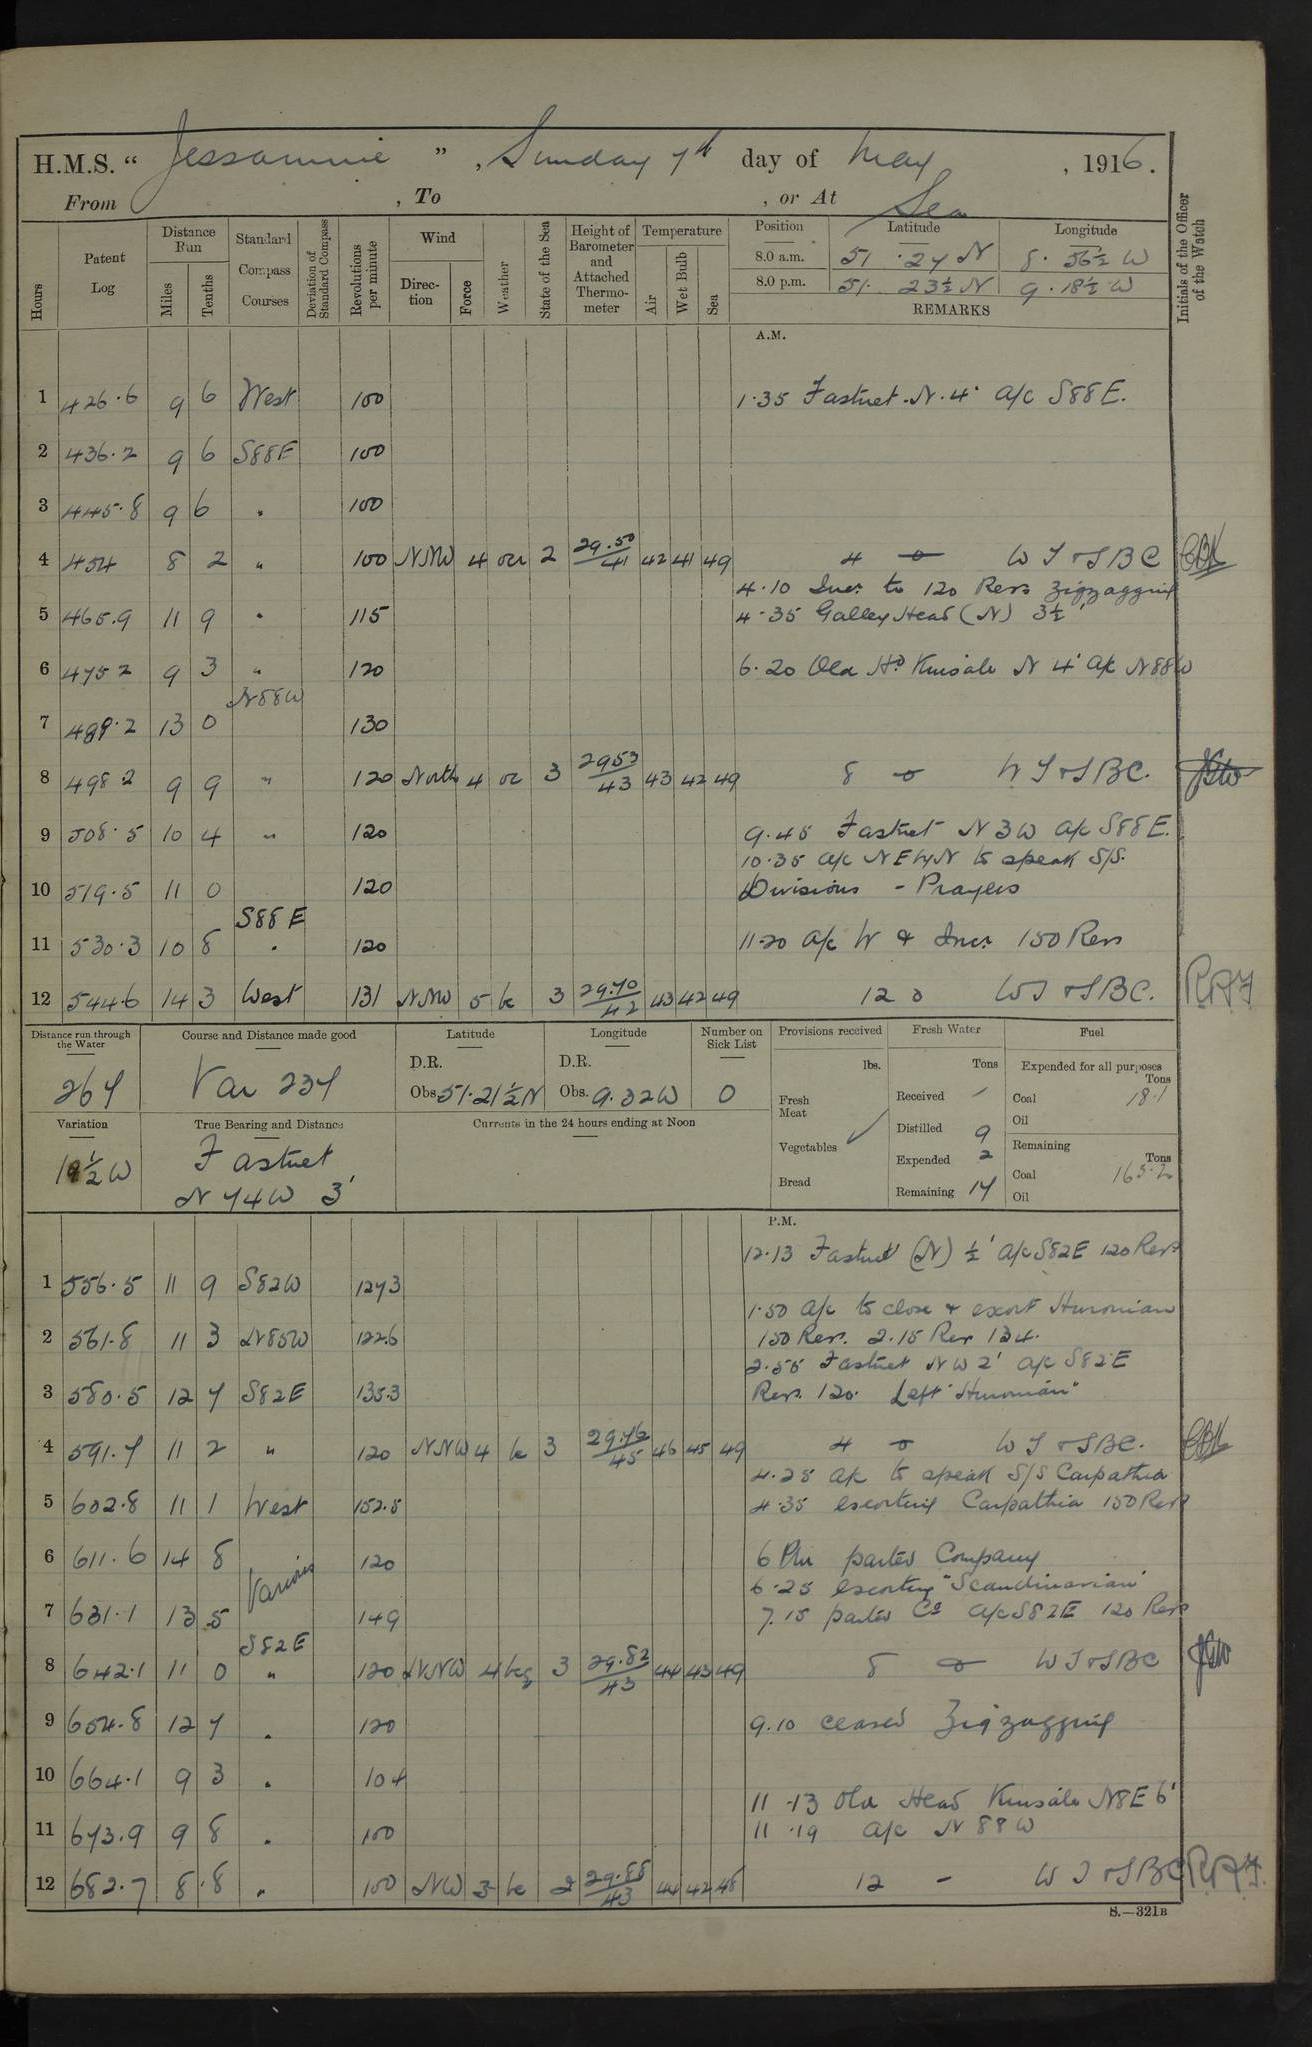 H.M.S. " Jessamine ", Sunday 7th day of May, 1916.
From , To , or At Sea
Hours
Patent Log
Distance Run
Miles
Tenths
Standard Compass Courses
Deviation of Standard Compass
Revolutions per minute
Wind
Direction
Force
Weather
State of the Sea
Height of Barometer and Attached Thermometer
Temperature
Air
Wet Bulb
Sea
Position Latitude Longitude
8.0 a.m. 51 . 24 N 8 . 56½ W
8.0 p.m. 51 . 23½ N 9 . 18½ W
REMARKS
Initials of the Officer of the Watch
A.M.
1 426.6 9 6 West 100 1.35 Fastnet . N . 4' a/c S88E.
2 436.2 9 6 S88E 100
3 445.8 9 6 " 100
4 454 8 2 " 100 NNW 4 oc 2 29.50/41 42 41 49 4 o W T & S B C
4.10 Incr. to 120 Revs Zigzagging
5 465.9 11 9 " 115 4.35 Galley Head (N) 3½'
6 475 2 9 3 " 120 6.20 Old Hd Kinsale N 4' a/c N88W
7 489.2 13 0 N88W 130
8 498 2 9 9 " 120 North 4 oc 3 2953/43 43 42 49 8 o W T & S B C.
9 508.5 10 4 " 120 9.45 Fastnet N 3 W a/c S88E.
10.35 a/c NE by N to speak S/S.
10 519.5 11 0 120 Divisions - Prayers
11 530.3 10 8 S88E " 120 11.20 a/c W & Incr. 150 Revs
12 544.6 14 3 West 131 NNW 5 bc 3 29.70/42 43 42 49 12 0 W T & S B C.
Distance run through the Water 267
Course and Distance made good Var 237
Latitude
D.R.
Obs 51.21½ N
Longitude
D.R.
Obs. 9.32 W
Number on Sick List 0
Provisions received
lbs.
Fresh Meat
Vegetables ✓
Bread
Fresh Water
Tons
Received -
Distilled 9
Expended 2
Remaining 17
Fuel
Expended for all purposes
Tons
Coal 18.1
Oil
Remaining
Tons
Coal 165.2
Oil
Variation 19½ W
True Bearing and Distance Fastnet
N 74 W 3'
Currents in the 24 hours ending at Noon
P.M.
12.13 Fastnet (N) ½' a/c S82E 120 Revs
1 556.5 11 9 S82W 127.3
1.50 a/c to close & escort Huronian
2 561.8 11 3 N85W 122.6 150 Revs. 2.15 Rev 134.
2.55 Fastnet NW 2' a/c S82E
3 580.5 12 7 S82E 135.3 Revs. 120. Left "Huronian"
4 591.7 11 2 " 120 NNW 4 bc 3 29.76/45 46 45 49 4 o W T & S B C.
4.25 a/c to speak S/S Carpathia
5 602.8 11 1 West 152.5 4.35 escorting Carpathia 150 Revs
6 611.6 14 8 Various 120 6 Pm parted Company
6.25 escorting "Scandinavian"
7 631.1 13 5 149 7.15 parted Co a/c S82E 120 Revs
8 642.1 11 0 S82E " 120 NNW 4 bcq 3 29.82/43 44 43 49 8 o W T & S B C
9 654.8 12 7 " 120 9.10 ceased Zigzagging
10 664.1 9 3 " 104
11.13 Old Head Kinsale N8E 6'
11 673.9 9 8 " 100 11.19 a/c N 88 W
12 682.7 8 .8 " 100 NW 3 bc 2 29.88/43 44 42 48 12 - W T & S B C
S.—321B